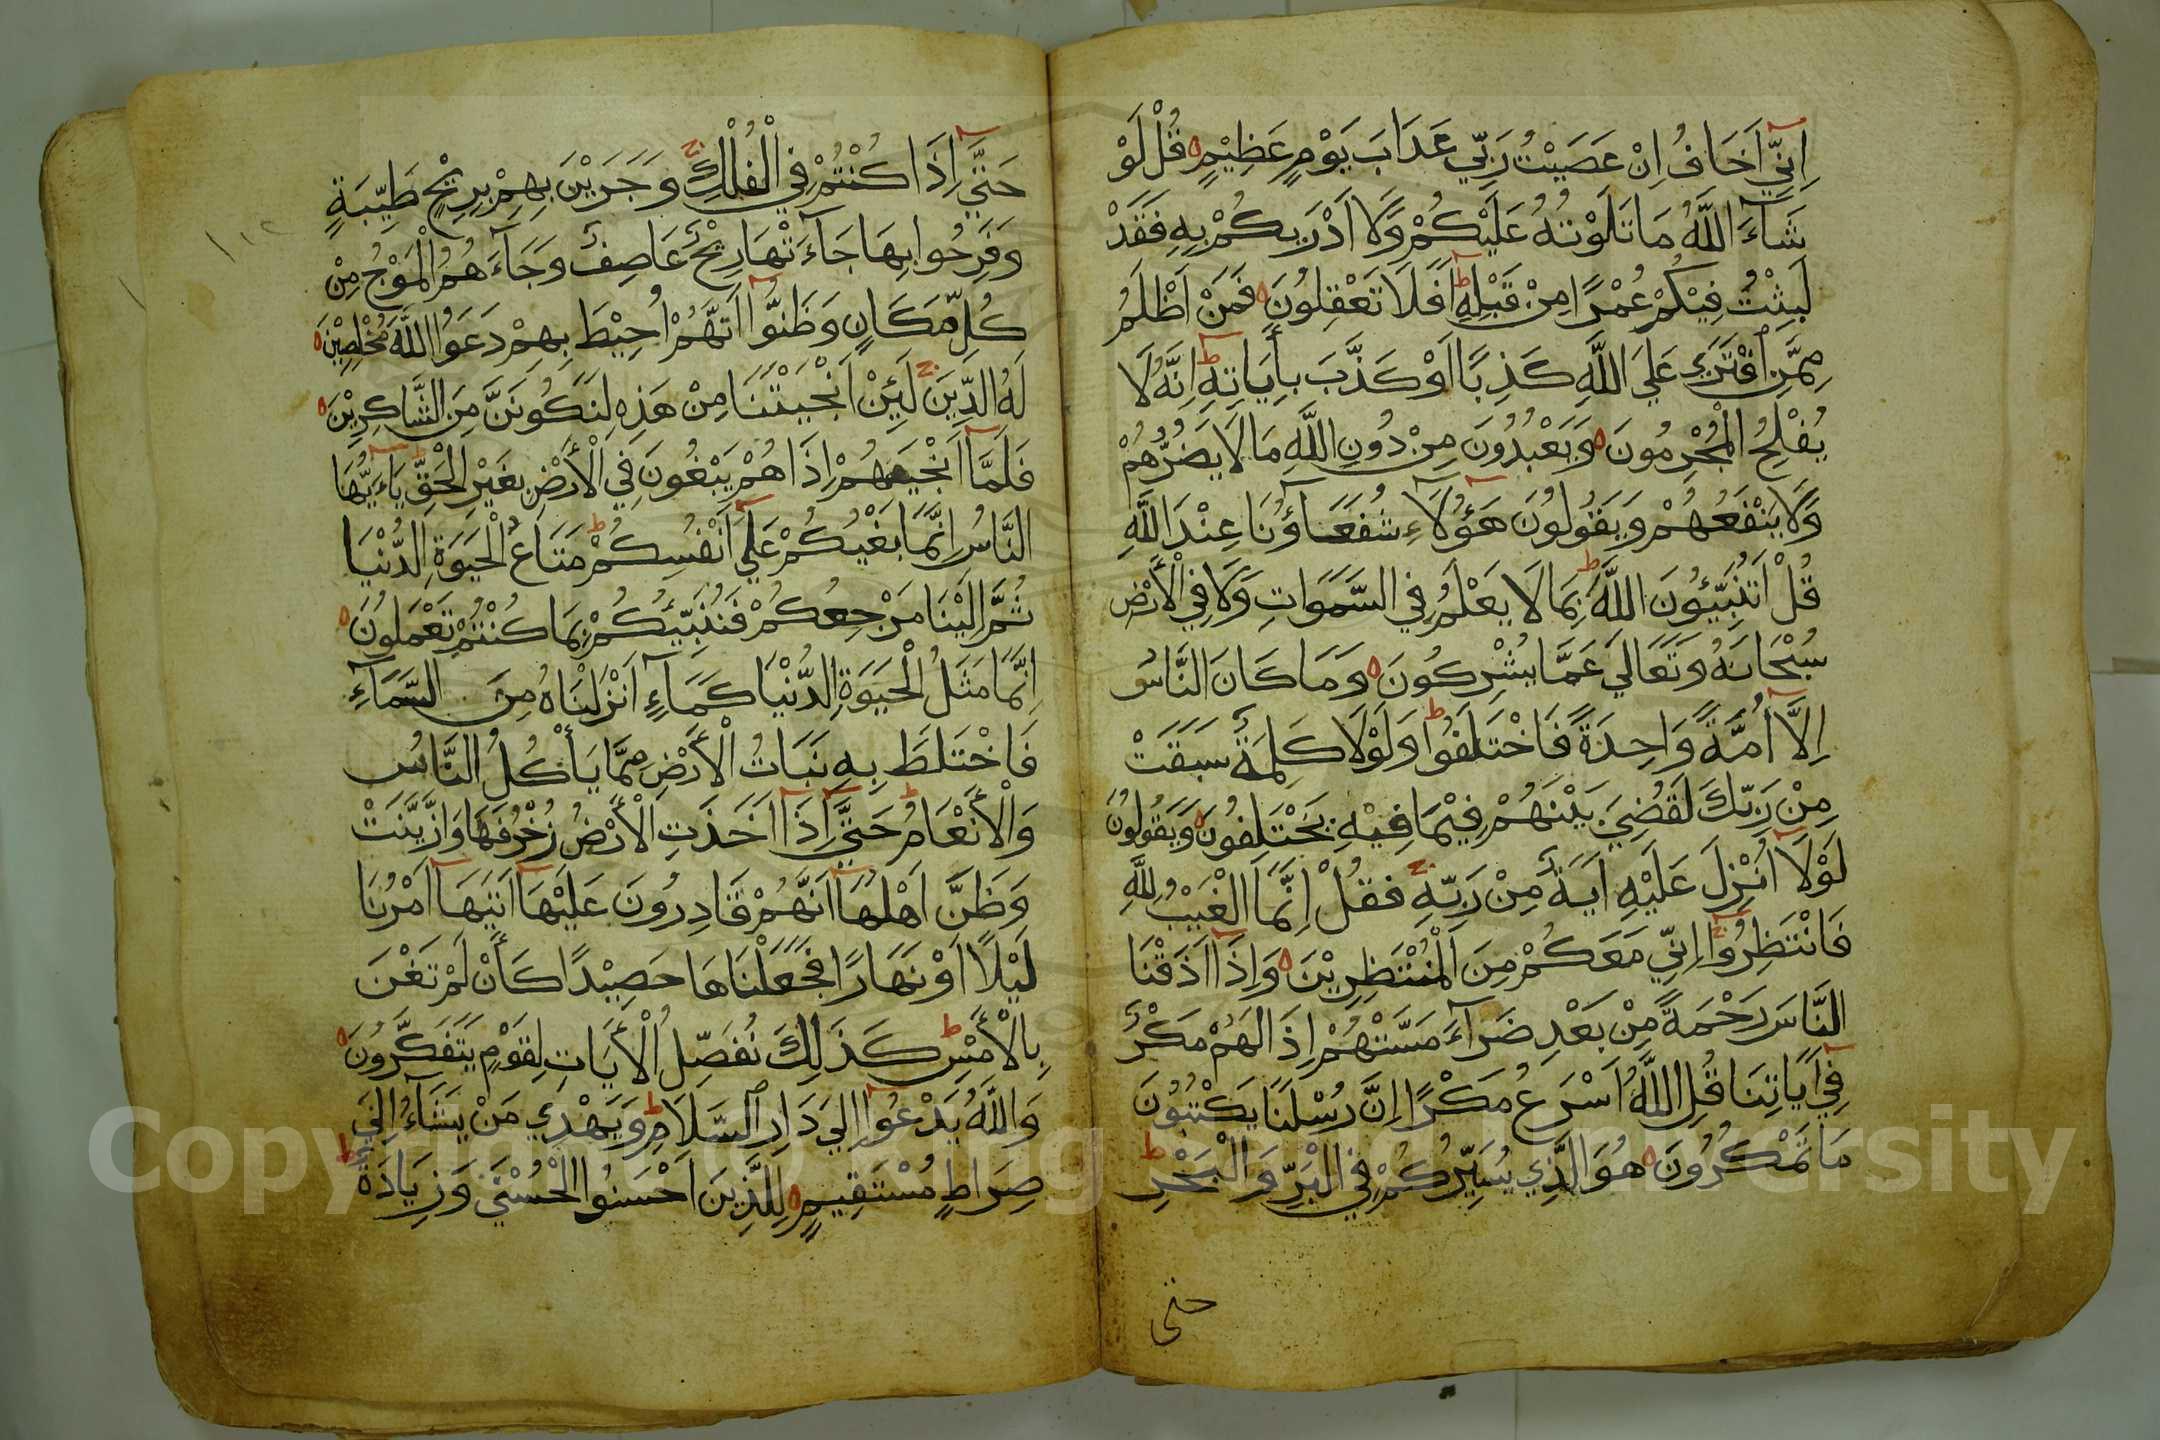 اِنِّي اَخَافُ اِنْ عَصَيْتُ رَبِّي عَذَابَ يَوْمٍ عَظِيْمٍ قُلْ لَوْ
شَآءَ اللَّهُ مَا تَلَوْتُهُ عَلَيْكُمْ وَلَا اَدْرَيكُمْ بِهِ فَقَدْ
لَبِثْتُ فِيْكُمْ عُمْرًا مِنْ قَبْلِهِ اَفَلَا تَعْقِلُونَ فَمَنْ اَظْلَمُ
مِمَّنِ افْتَرَي عَلَي اللَّهِ كَذِبًا اَوْ كَذَّبَ بِأَيَاتِهِ اِنَّهُ لَا
يُفْلِحُ الْمُجْرِمُونَ وَيَعْبُدُونَ مِنْ دُونِ اللَّهِ مَا لَا يَضُرُّهُمْ
وَلَا يَنْفَعُهُمْ وَيَقُولُونَ هَؤُلَآءِ شُفَعَآؤُنَا عِنْدَ اللَّهِ
قُلْ اَتُنَبِّئُونَ اللَّهَ بِمَا لَا يَعْلَمُ فِي السَّمَوَاتِ وَلَا فِي الْأَرْضِ
سُبْحَانَهُ وَتَعَالَي عَمَّا يُشْرِكُونَ وَمَا كَانَ النَّاسُ
اِلَّا اُمَّةً وَاحِدَةً فَاخْتَلَفُوا وَلَوْلَا كَلِمَةٌ سَبَقَتْ
مِنْ رَبِّكَ لَقُضِيَ بَيْنَهُمْ فِيْمَا فِيْهِ يَخْتَلِفُونَ وَيَقُولُونَ
لَوْلَا اُنْزِلَ عَلَيْهِ اَيَةٌ مِنْ رَبِّهِ فَقُلْ اِنَّمَا الْغَيْبُ لِلَّهِ
فَانْتَظِرُوا اِنِّي مَعَكُمْ مِنَ الْمُنْتَظِرِيْنَ وَاِذَا اَذَقْنَا
النَّاسَ رَحْمَةً مِنْ بَعْدِ ضَرَّآءَ مَسَّتْهُمْ اِذَا لَهُمْ مَكْرٌ
فِي اَيَاتِنَا قُلِ اللَّهُ اَسْرَعُ مَكْرًا اِنَّ رُسُلَنَا يَكْتُبُونَ
مَا تَمْكُرُونَ هُوَ الَّذِي يُسَيِّرُكُمْ فِي الْبَرِّ وَالْبَحْرِ
حتى
حَتَّي اِذَا كُنْتُمْ فِي الْفُلْكِ وَجَرَيْنَ بِهِمْ بِرِيْحٍ طَيِّبَةٍ
وَفَرِحُوا بِهَا جَآءَتْهَا رِيْحٌ عَاصِفٌ وَجَآءَهُمُ الْمَوْجُ مِنْ
كُلِّ مَكَانٍ وَظَنُّوا اَنَّهُمْ اُحِيْطَ بِهِمْ دَعَوُا اللَّهَ مُخْلِصِيْنَ
لَهُ الدِّيْنَ لَئِنْ اَنْجَيْتَنَا مِنْ هَذِهِ لَنَكُونَنَّ مِنَ الشَّاكِرِيْنَ
فَلَمَّا اَنْجَيهُمْ اِذَا هُمْ يَبْغُونَ فِي الْأَرْضِ بِغَيْرِ الْحَقِّ يَاءَيُّهَا
النَّاسُ اِنَّمَا بَغْيُكُمْ عَلَي اَنْفُسِكُمْ مَتَاعُ الْحَيَوةِ الدُّنْيَا
ثُمَّ اِلَيْنَا مَرْجِعُكُمْ فَنُنَبِّئُكُمْ بِمَا كُنْتُمْ تَعْمَلُونَ
اِنَّمَا مَثَلُ الْحَيَوةِ الدُّنْيَا كَمَآءٍ اَنْزَلْنَاهُ مِنَ السَّمَآءِ
فَاخْتَلَطَ بِهِ نَبَاتُ الْأَرْضِ مِمَّا يَأْكُلُ النَّاسُ
وَالْأَنْعَامُ حَتَّي اِذَا اَخَذَتِ الْأَرْضُ زُخْرُفَهَا وَازَّيَّنَتْ
وَظَنَّ اَهْلُهَا اَنَّهُمْ قَادِرُونَ عَلَيْهَا اَتَيهَا اَمْرُنَا
لَيْلًا اَوْ نَهَارًا فَجَعَلْنَاهَا حَصِيْدًا كَأَنْ لَمْ تَغْنَ
بِالْأَمْسِ كَذَلِكَ نُفَصِّلُ الْأَيَاتِ لِقَوْمٍ يَتَفَكَّرُونَ
وَاللَّهُ يَدْعُوا اِلَي دَارِ السَّلَامِ وَيَهْدِي مَنْ يَشَآءُ اِلَي
صِرَاطٍ مُسْتَقِيمٍ لِلَّذِيْنَ اَحْسَنُوا الْحُسْنَي وَزِيَادَةٌ
١١٢
Copyright © King Saud University